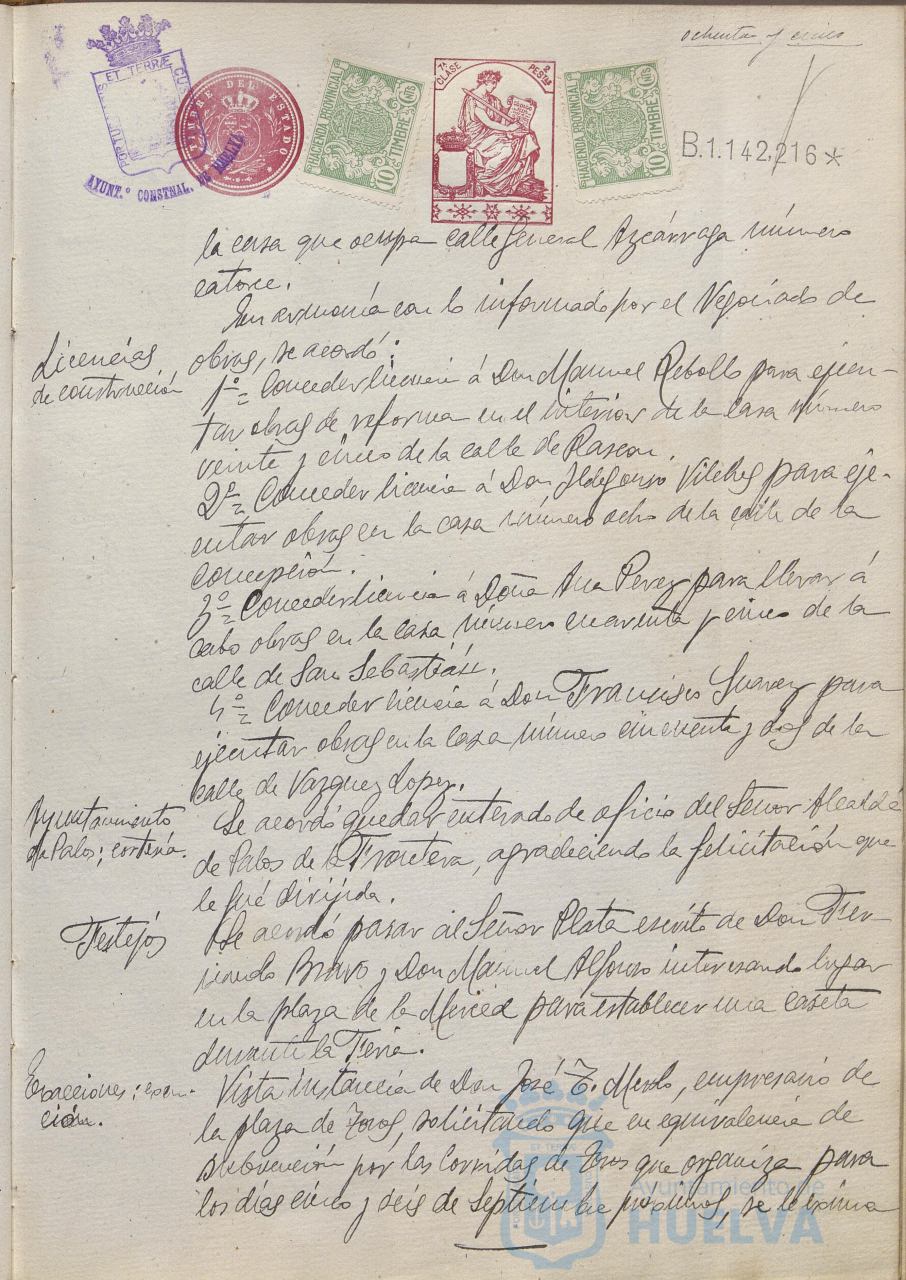 ochenta y cinco
PORTUS MARIS ET TERRÆ CUSTODIA
AYUNT.º CONSTNAL. DE HUELVA
TIMBRE DEL ESTADO
HACIENDA PROVINCIAL
10 CTS TIMBRE
7ª CLASE 2 PESTAS
HACIENDA PROVINCIAL
10 CTS TIMBRE
B.1.142,216*
la casa que ocupa calle General Azcárraga número
catorce.
En armonía con lo informado por el Negociado de
Licencias
de construcción
obras, se acordó:
1º= Conceder licencia á Don Manuel Rebollo para ejecu-
tar obras de reforma en el interior de la casa número
veinte y cinco de la calle de Rascon.
2º= Conceder licencia á Don Ildefonso Vilches para eje-
cutar obras en la casa número ocho de la calle de la
Concepción.
3º= Conceder licencia á Doña Ana Perez para llevar á
cabo obras en la casa número cuarenta y cinco de la
calle de San Sebastián.
4º= Conceder licencia á Don Francisco Suarez para
ejecutar obras en la casa número cincuenta y dos de la
calle de Vazquez Lopez.
Ayuntamiento
de Palos; cortesía.
Se acordó quedar enterado de oficio del Señor Alcalde
de Palos de la Frontera, agradeciendo la felicitación que
le fué dirijida.
Festejos
Se acordó pasar al Señor Plata escrito de Don Fer-
nando Bravo y Don Manuel Alfonso interesando lugar
en la plaza de la Merced para establecer una caseta
durante la Feria.
Exacciones; exen-
ción.
Vista instancia de Don José T. Merlo, empresario de
la plaza de Toros, solicitando que en equivalencia de
subvención por las corridas de Toros que organiza para
los días cinco y seis de Septiembre próximos, se le exima
Ayuntamiento de
HUELVA